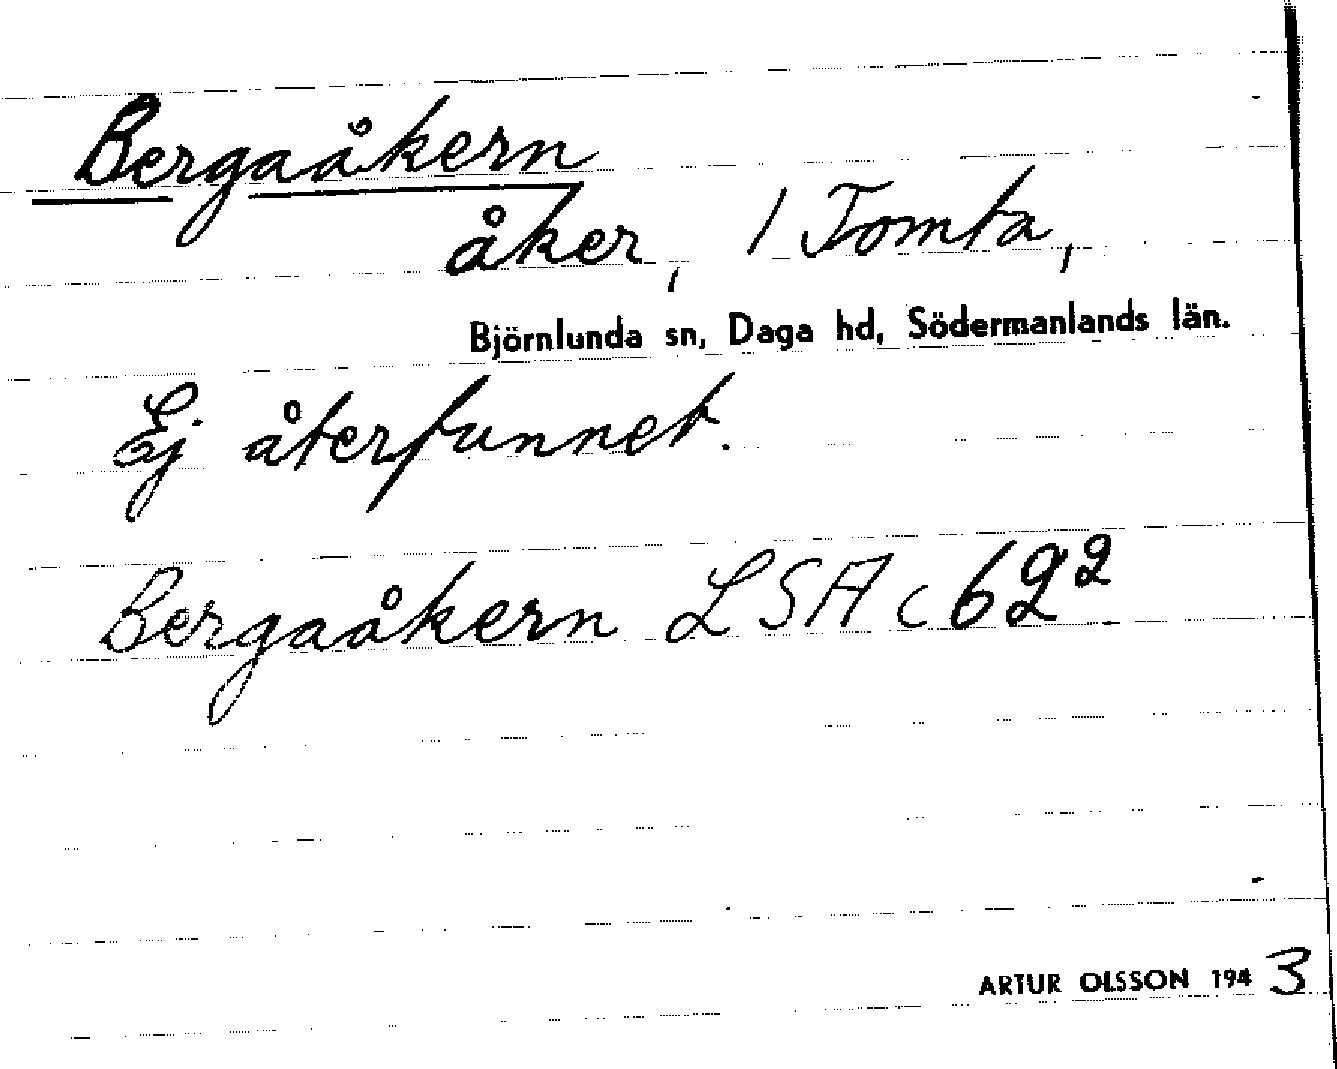 Bergaåkern
åker, / Tomta,
Björnlunda sn, Daga hd, Södermanlands län.
Ej återfunnet.
Bergaåkern LSA c 6²²
ARTUR OLSSON 1943